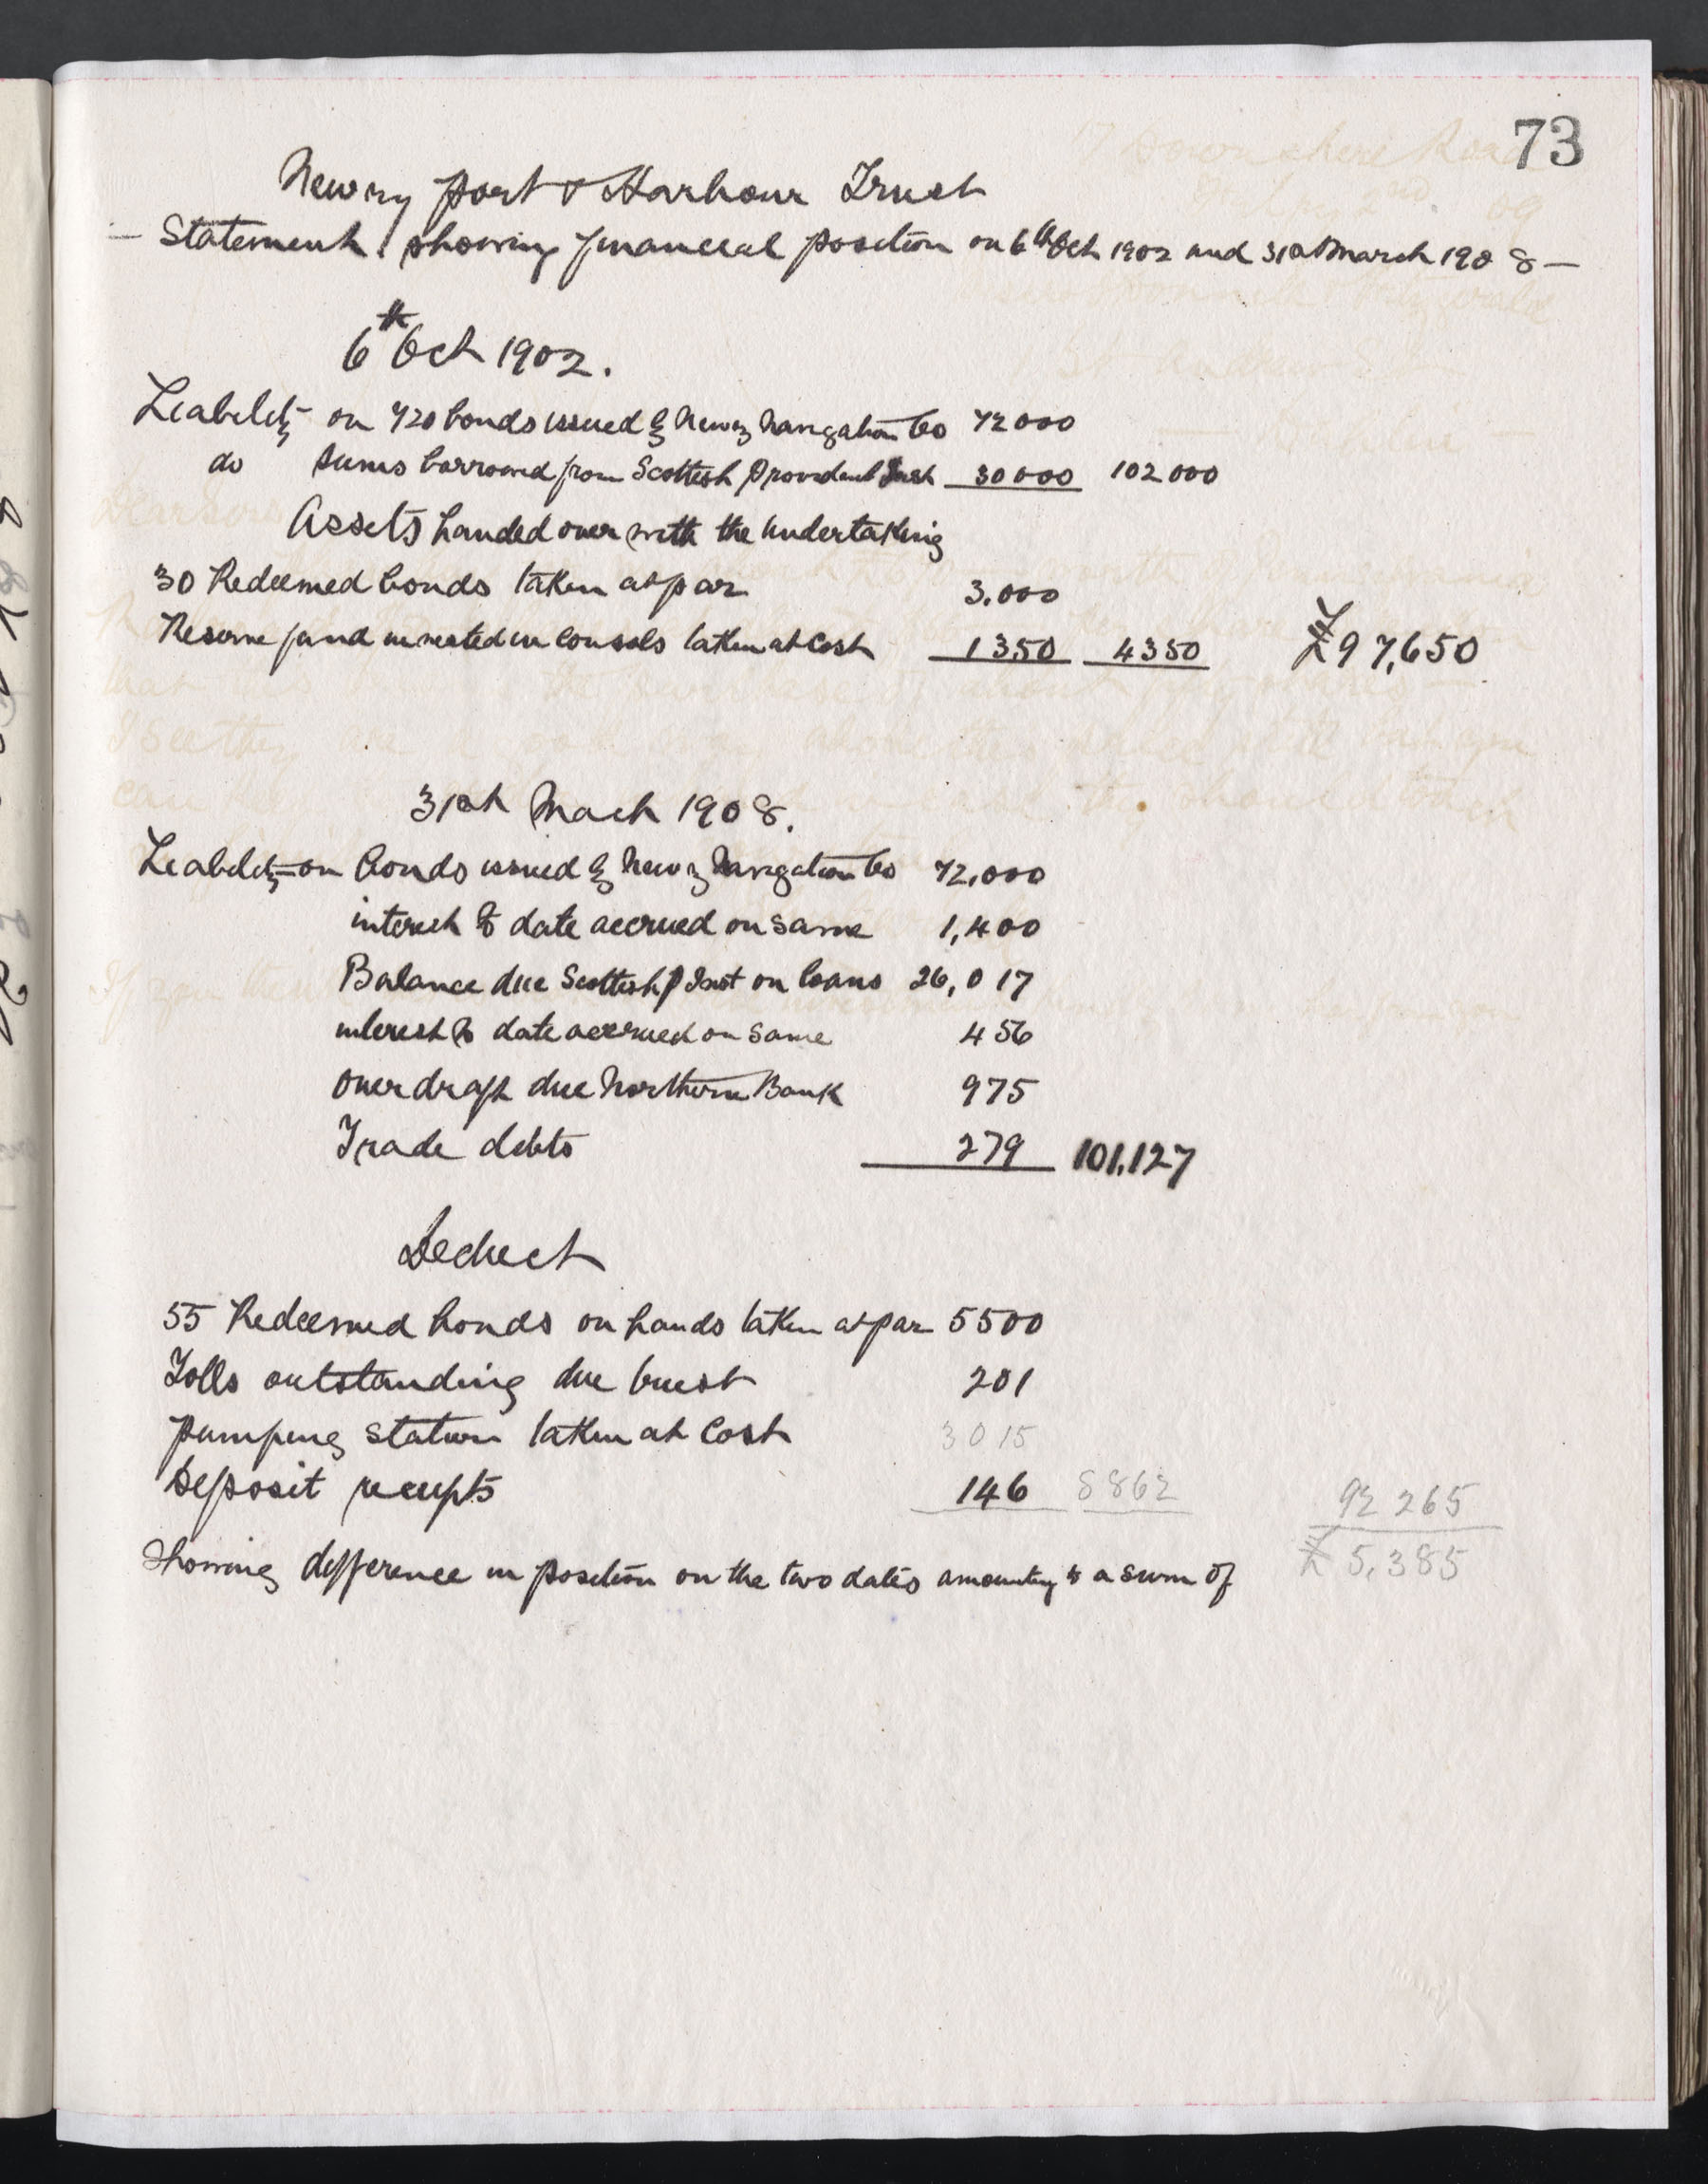 73
Newry Port & Harbour Trust
— Statement showing financial position on 6th Oct 1902 and 31st March 1908 —
6th Oct 1902.
Liability on 720 bonds issued by Newry Navigation Co 72000
do sums borrowed from Scottish Provident Inst 30000 102000
Assets handed over with the undertaking
30 Redeemed bonds taken at par 3.000
Reserve fund invested in Consols taken at Cost 1350 4350 £97,650
31st March 1908.
Liability on bonds issued by Newry Navigation Co 72,000
interest to date accrued on same 1,400
Balance due Scottish P Inst on loans 26,017
interest to date accrued on same 456
overdraft due Northern Bank 975
Trade debts 279 101,127
Deduct
55 Redeemed bonds on hands taken at par 5500
Tolls outstanding due trust 201
Pumping station taken at Cost 3015
Deposit receipts 146 8862 92 265
Showing difference in position on the two dates amounting to a sum of £5,385